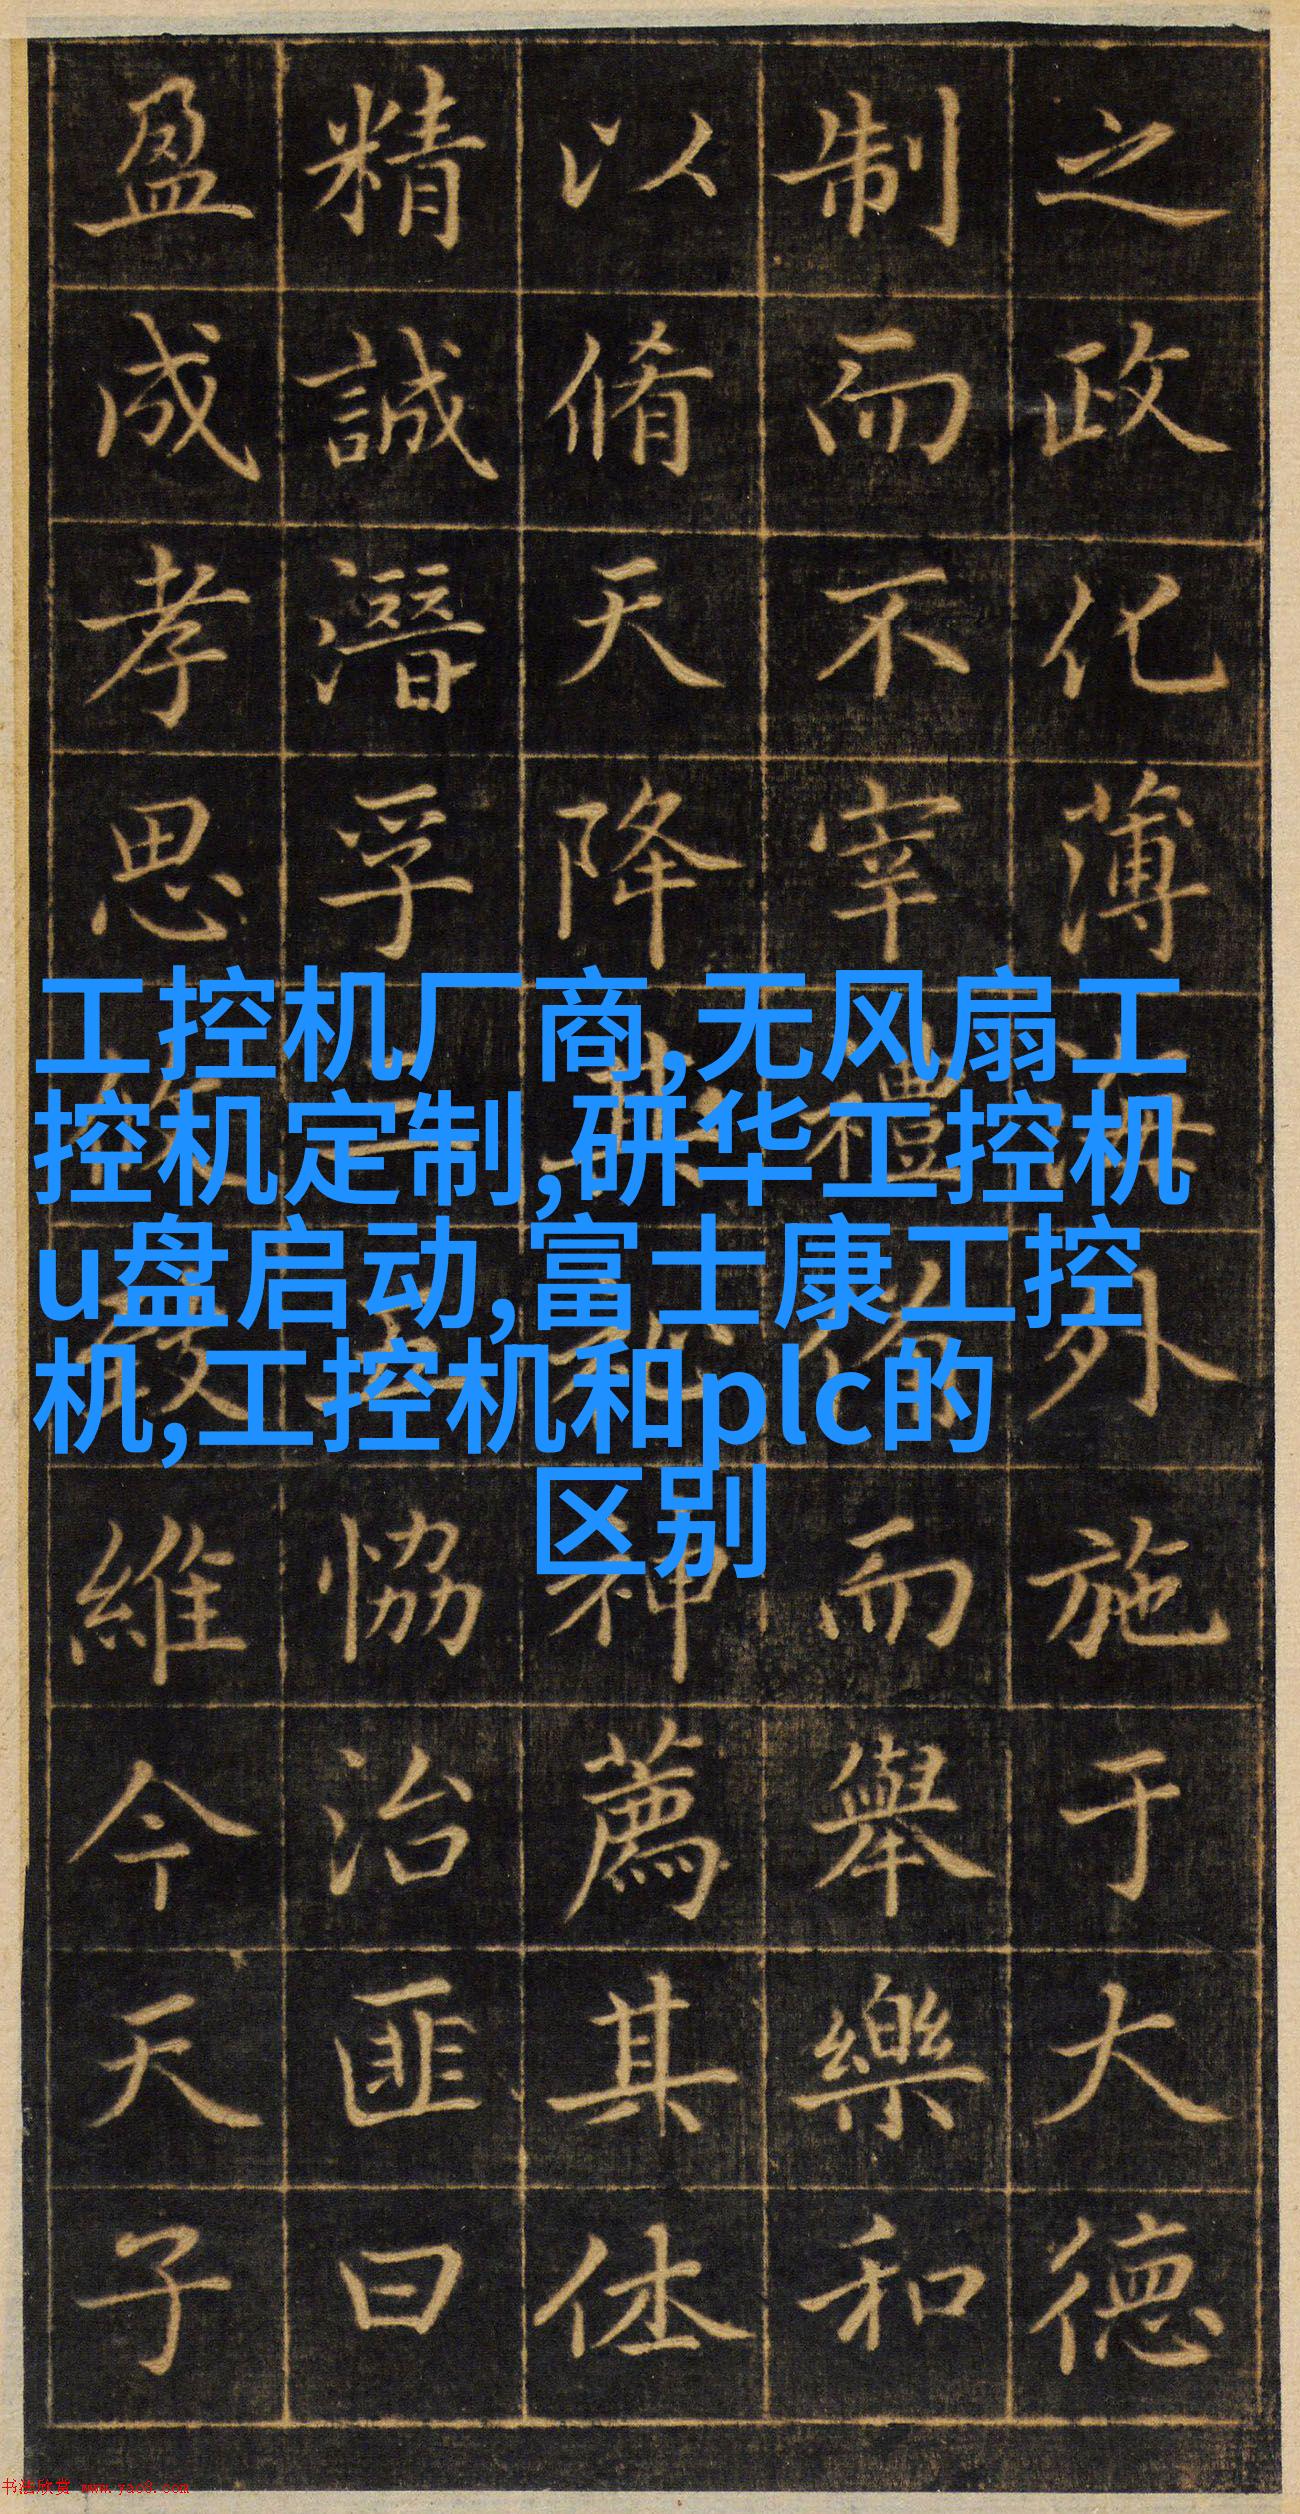 之政化薄外施于大德
制而不宰禮而舉樂和
以脩天降其神薦其休
精誠潛孚恊治匪曰
盈成孝思維今天子
工控机厂商,无风扇工
控机定制,研华工控机
u盘启动,富士康工控
机,工控机和plc的
区别
书法欣赏 www.yac8.com